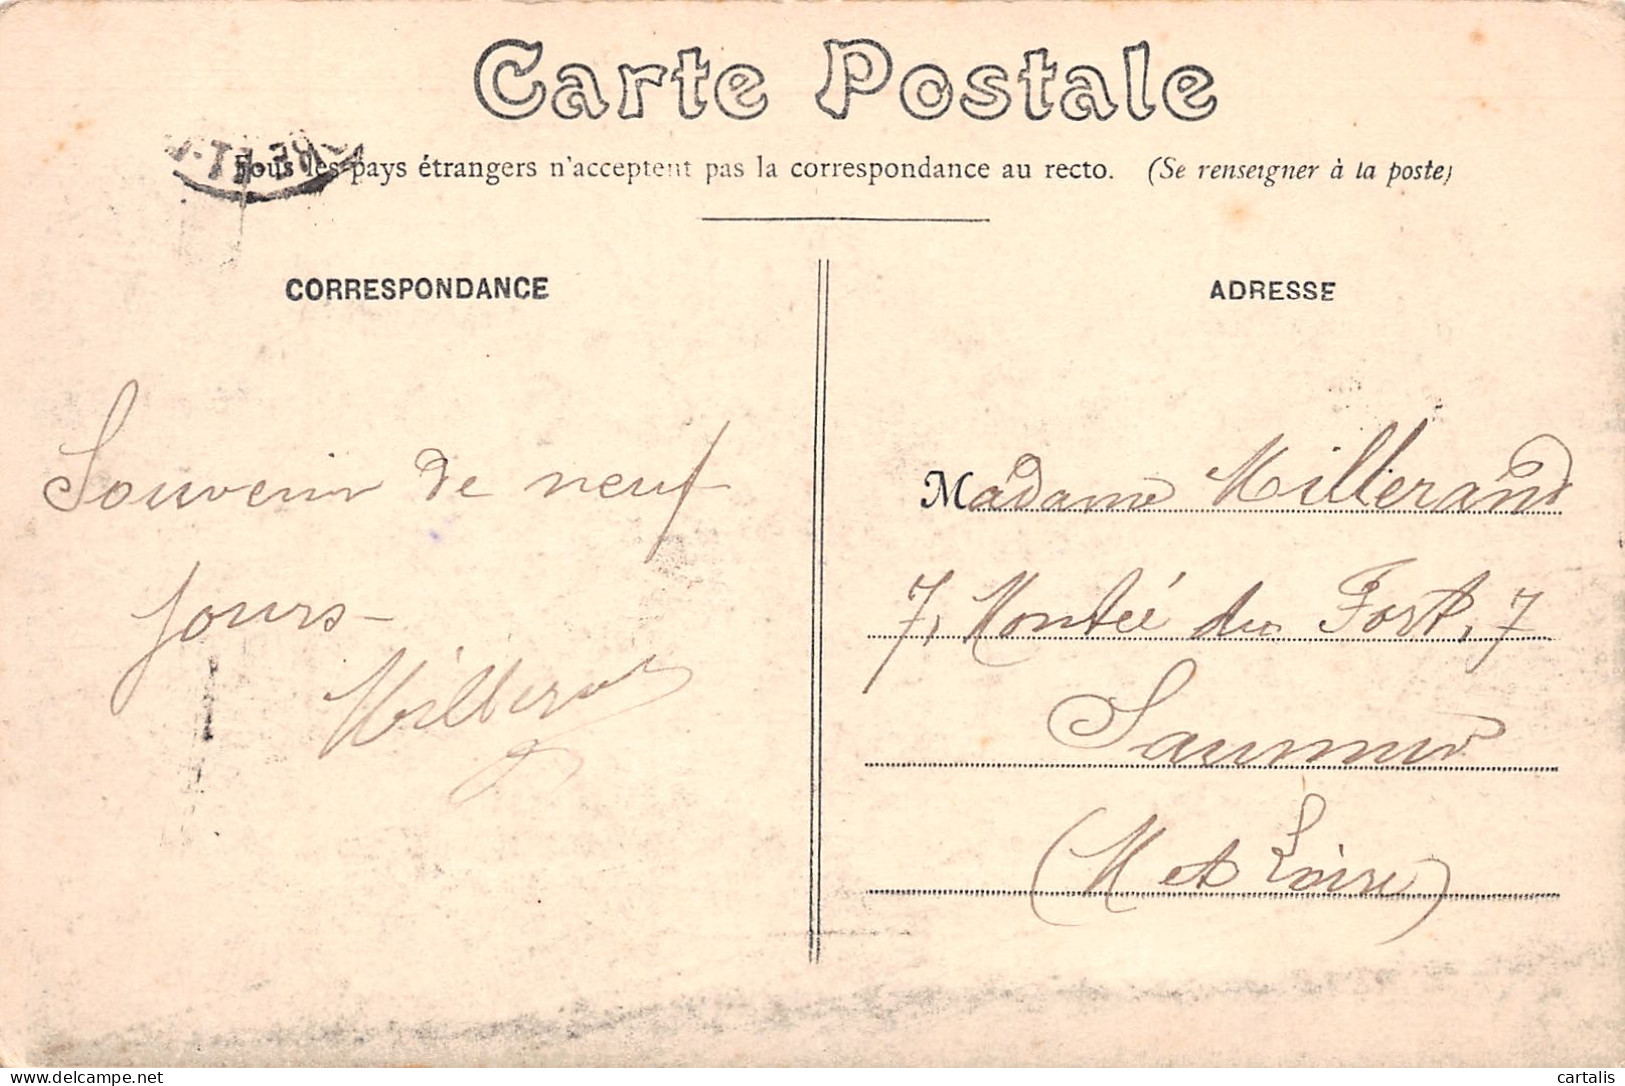 Carte Postale
Tous les pays étrangers n'acceptent pas la correspondance au recto. (Se renseigner à la poste)
CORRESPONDANCE
Souvenir de neuf
jours –
Millerand
ADRESSE
Madame Millerand
7, Montée du Fort, 7
Saumur
(M et Loire)
www.delcampe.net
cartalis